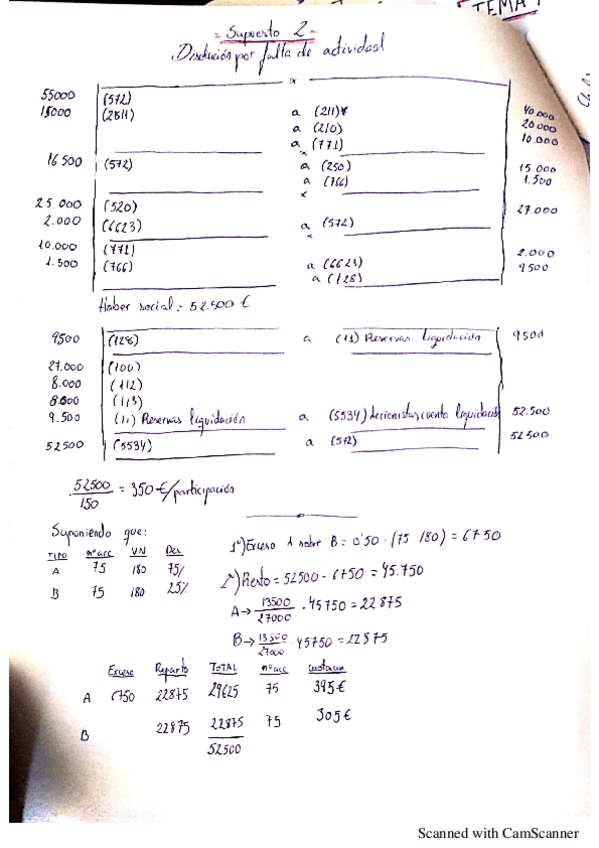 TEMA
= Supuesto 2 =
Disolución por falta de actividad
x
55000 (572)
15000 (2811) a (211)* 40.000
a (210) 20.000
a (771) 10.000
x
16 500 (572) a (250) 15.000
a (766) 1.500
x
25.000 (520) 27.000
2.000 (6623) a (572)
x
10.000 (771)
1.500 (766) a (6623) 2.000
a (128) 9500
Haber social = 52.500 €
9500 (128) a (11) Reservas liquidación 9500
27.000 (100)
8.000 (112)
8.000 (113)
9.500 (11) Reservas liquidación a (5534) Accionistas cuenta liquidación 52.500
52500 (5534) a (572) 52500
52500/150 = 350 €/participación
Suponiendo que:
TIPO nº acc VN Des
A 75 180 75%
B 75 180 25%
1º) Exceso A sobre B = 0'50 · (75 · 180) = 6750
2º) Resto = 52500 - 6750 = 45.750
A → 13500/27000 · 45750 = 22875
B → 13500/27000 · 45750 = 22875
Exceso Reparto TOTAL nº acc
A 6750 22875 29625 75 395 €
B 22875 22875 75 305 €
52500
Scanned with CamScanner